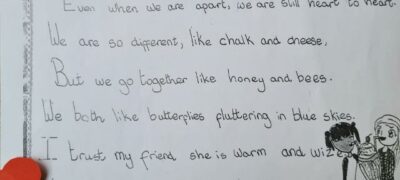 Even when we are apart, we are still heart to heart.
We are so different, like chalk and cheese,
But we go together like honey and bees.
We both like butterflies fluttering in blue skies.
I trust my friend she is warm and wize